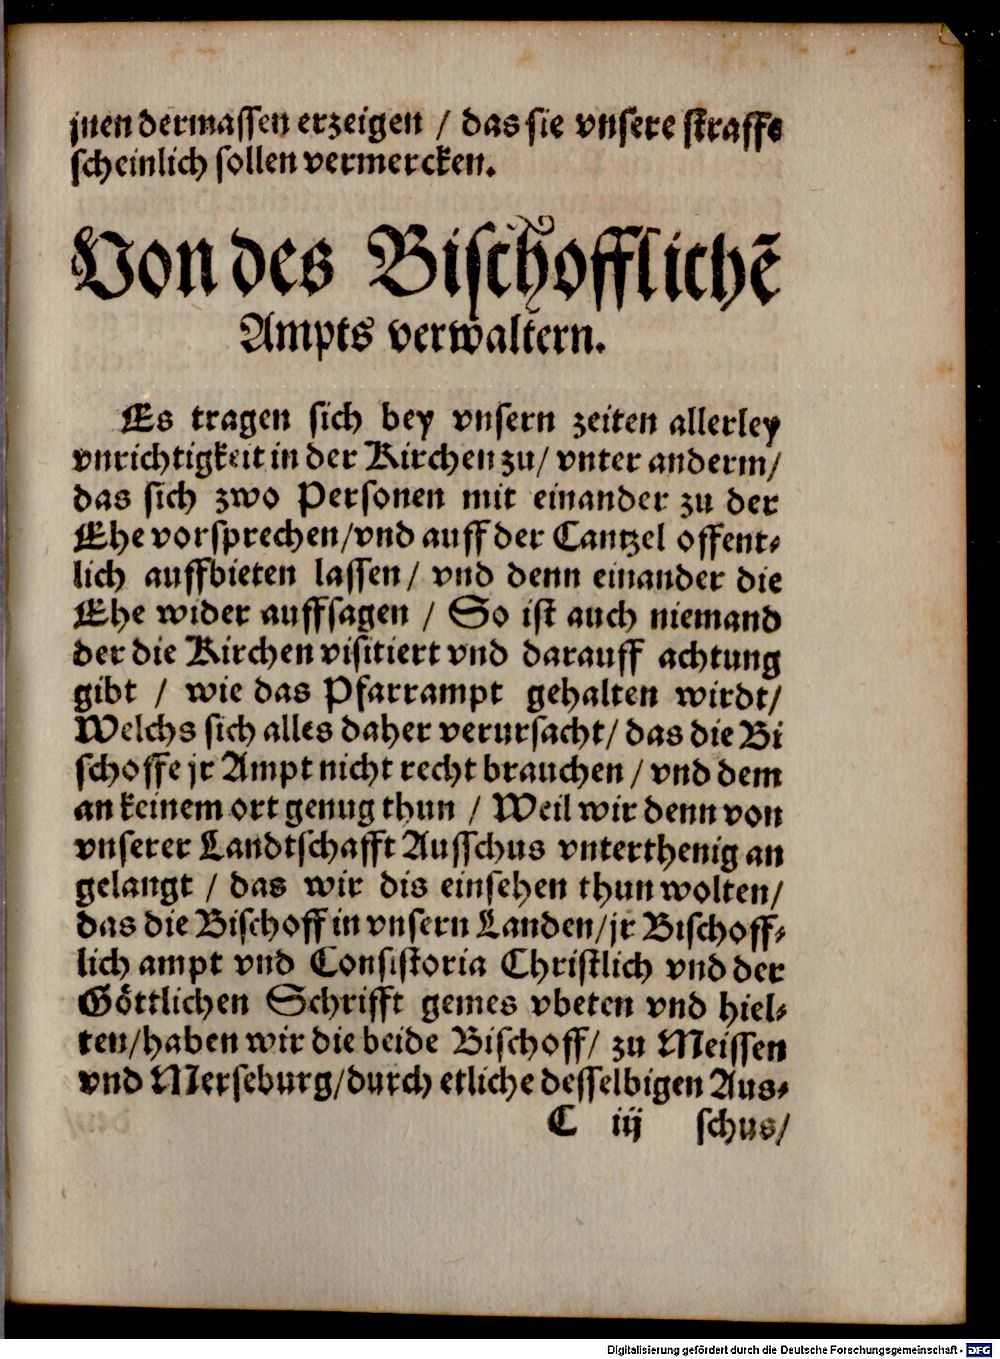 jnen dermassen erzeigen / das sie vnsere straffe
scheinlich sollen vermercken.
Von des Bischofflichē
Ampts verwaltern.
Es tragen sich bey vnsern zeiten allerley
vnrichtigkeit in der Kirchen zu/ vnter anderm/
das sich zwo Personen mit einander zu der
Ehe vorsprechen/vnd auff der Cantzel offent⸗
lich auffbieten lassen/ vnd denn einander die
Ehe wider auffsagen / So ist auch niemand
der die Kirchen visitiert vnd darauff achtung
gibt / wie das Pfarrampt gehalten wirdt/
Welchs sich alles daher verursacht/ das die Bi
schoffe jr Ampt nicht recht brauchen / vnd dem
an keinem ort genug thun / Weil wir denn von
vnserer Landtschafft Ausschus vnterthenig an
gelangt / das wir dis einsehen thun wolten/
das die Bischoff in vnsern Landen/jr Bischoff⸗
lich ampt vnd Consistoria Christlich vnd der
Göttlichen Schrifft gemes vbeten vnd hiel⸗
ten/haben wir die beide Bischoff/ zu Meissen
vnd Merseburg/durch etliche desselbigen Aus⸗
C iij schus/
Digitalisierung gefördert durch die Deutsche Forschungsgemeinschaft - DFG